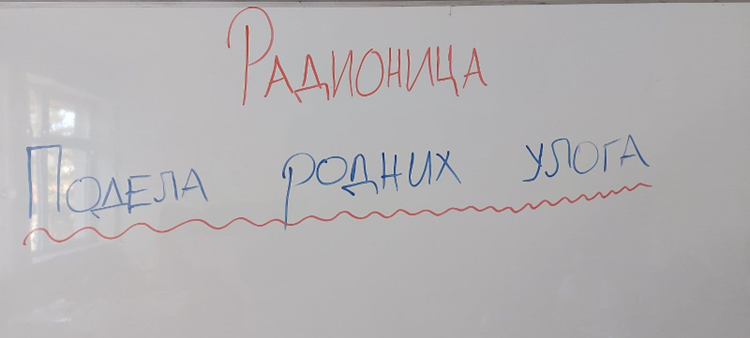 Радионица
Подела родних улога